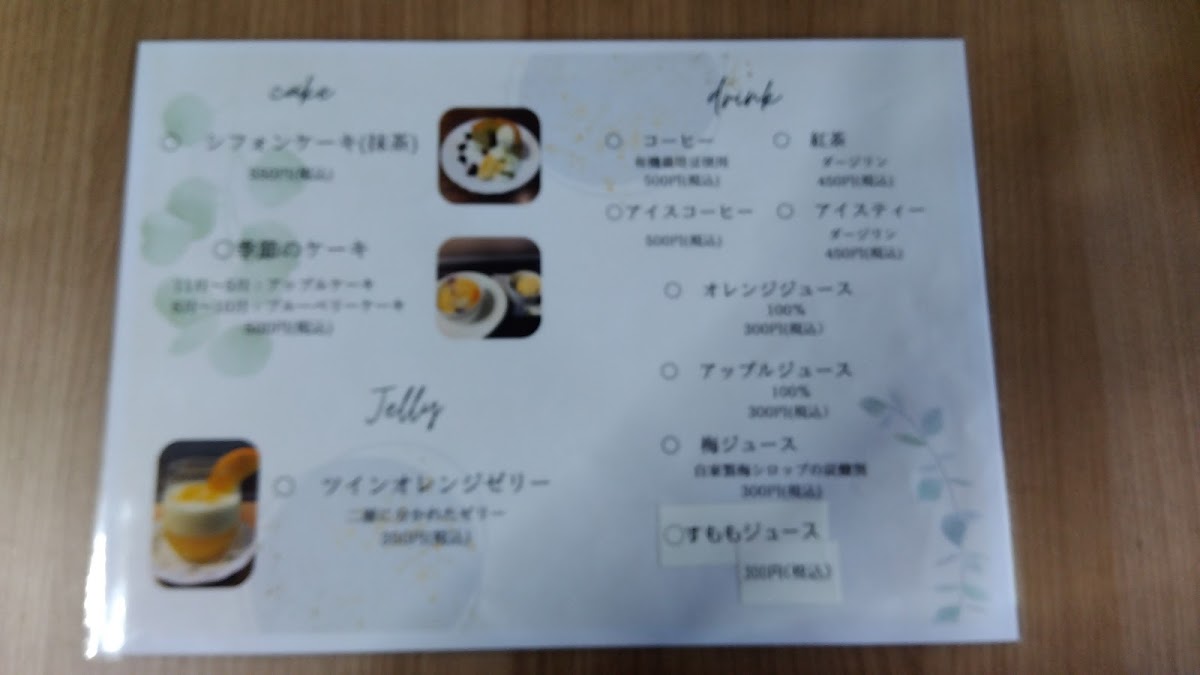 cake
○ シフォンケーキ(抹茶)
550円(税込)
○季節のケーキ
11月～5月：アップルケーキ
6月～10月：ブルーベリーケーキ
500円(税込)
Jelly
○ ツインオレンジゼリー
二層に分かれたゼリー
(税込)
drink
○ コーヒー
500円(税込)
○ 紅茶
ダージリン
450円(税込)
○アイスコーヒー
500円(税込)
○ アイスティー
ダージリン
450円(税込)
○ オレンジジュース
100%
300円(税込)
○ アップルジュース
100%
300円(税込)
○ 梅ジュース
自家製梅シロップの炭酸割
300円(税込)
○すももジュース
300円(税込)